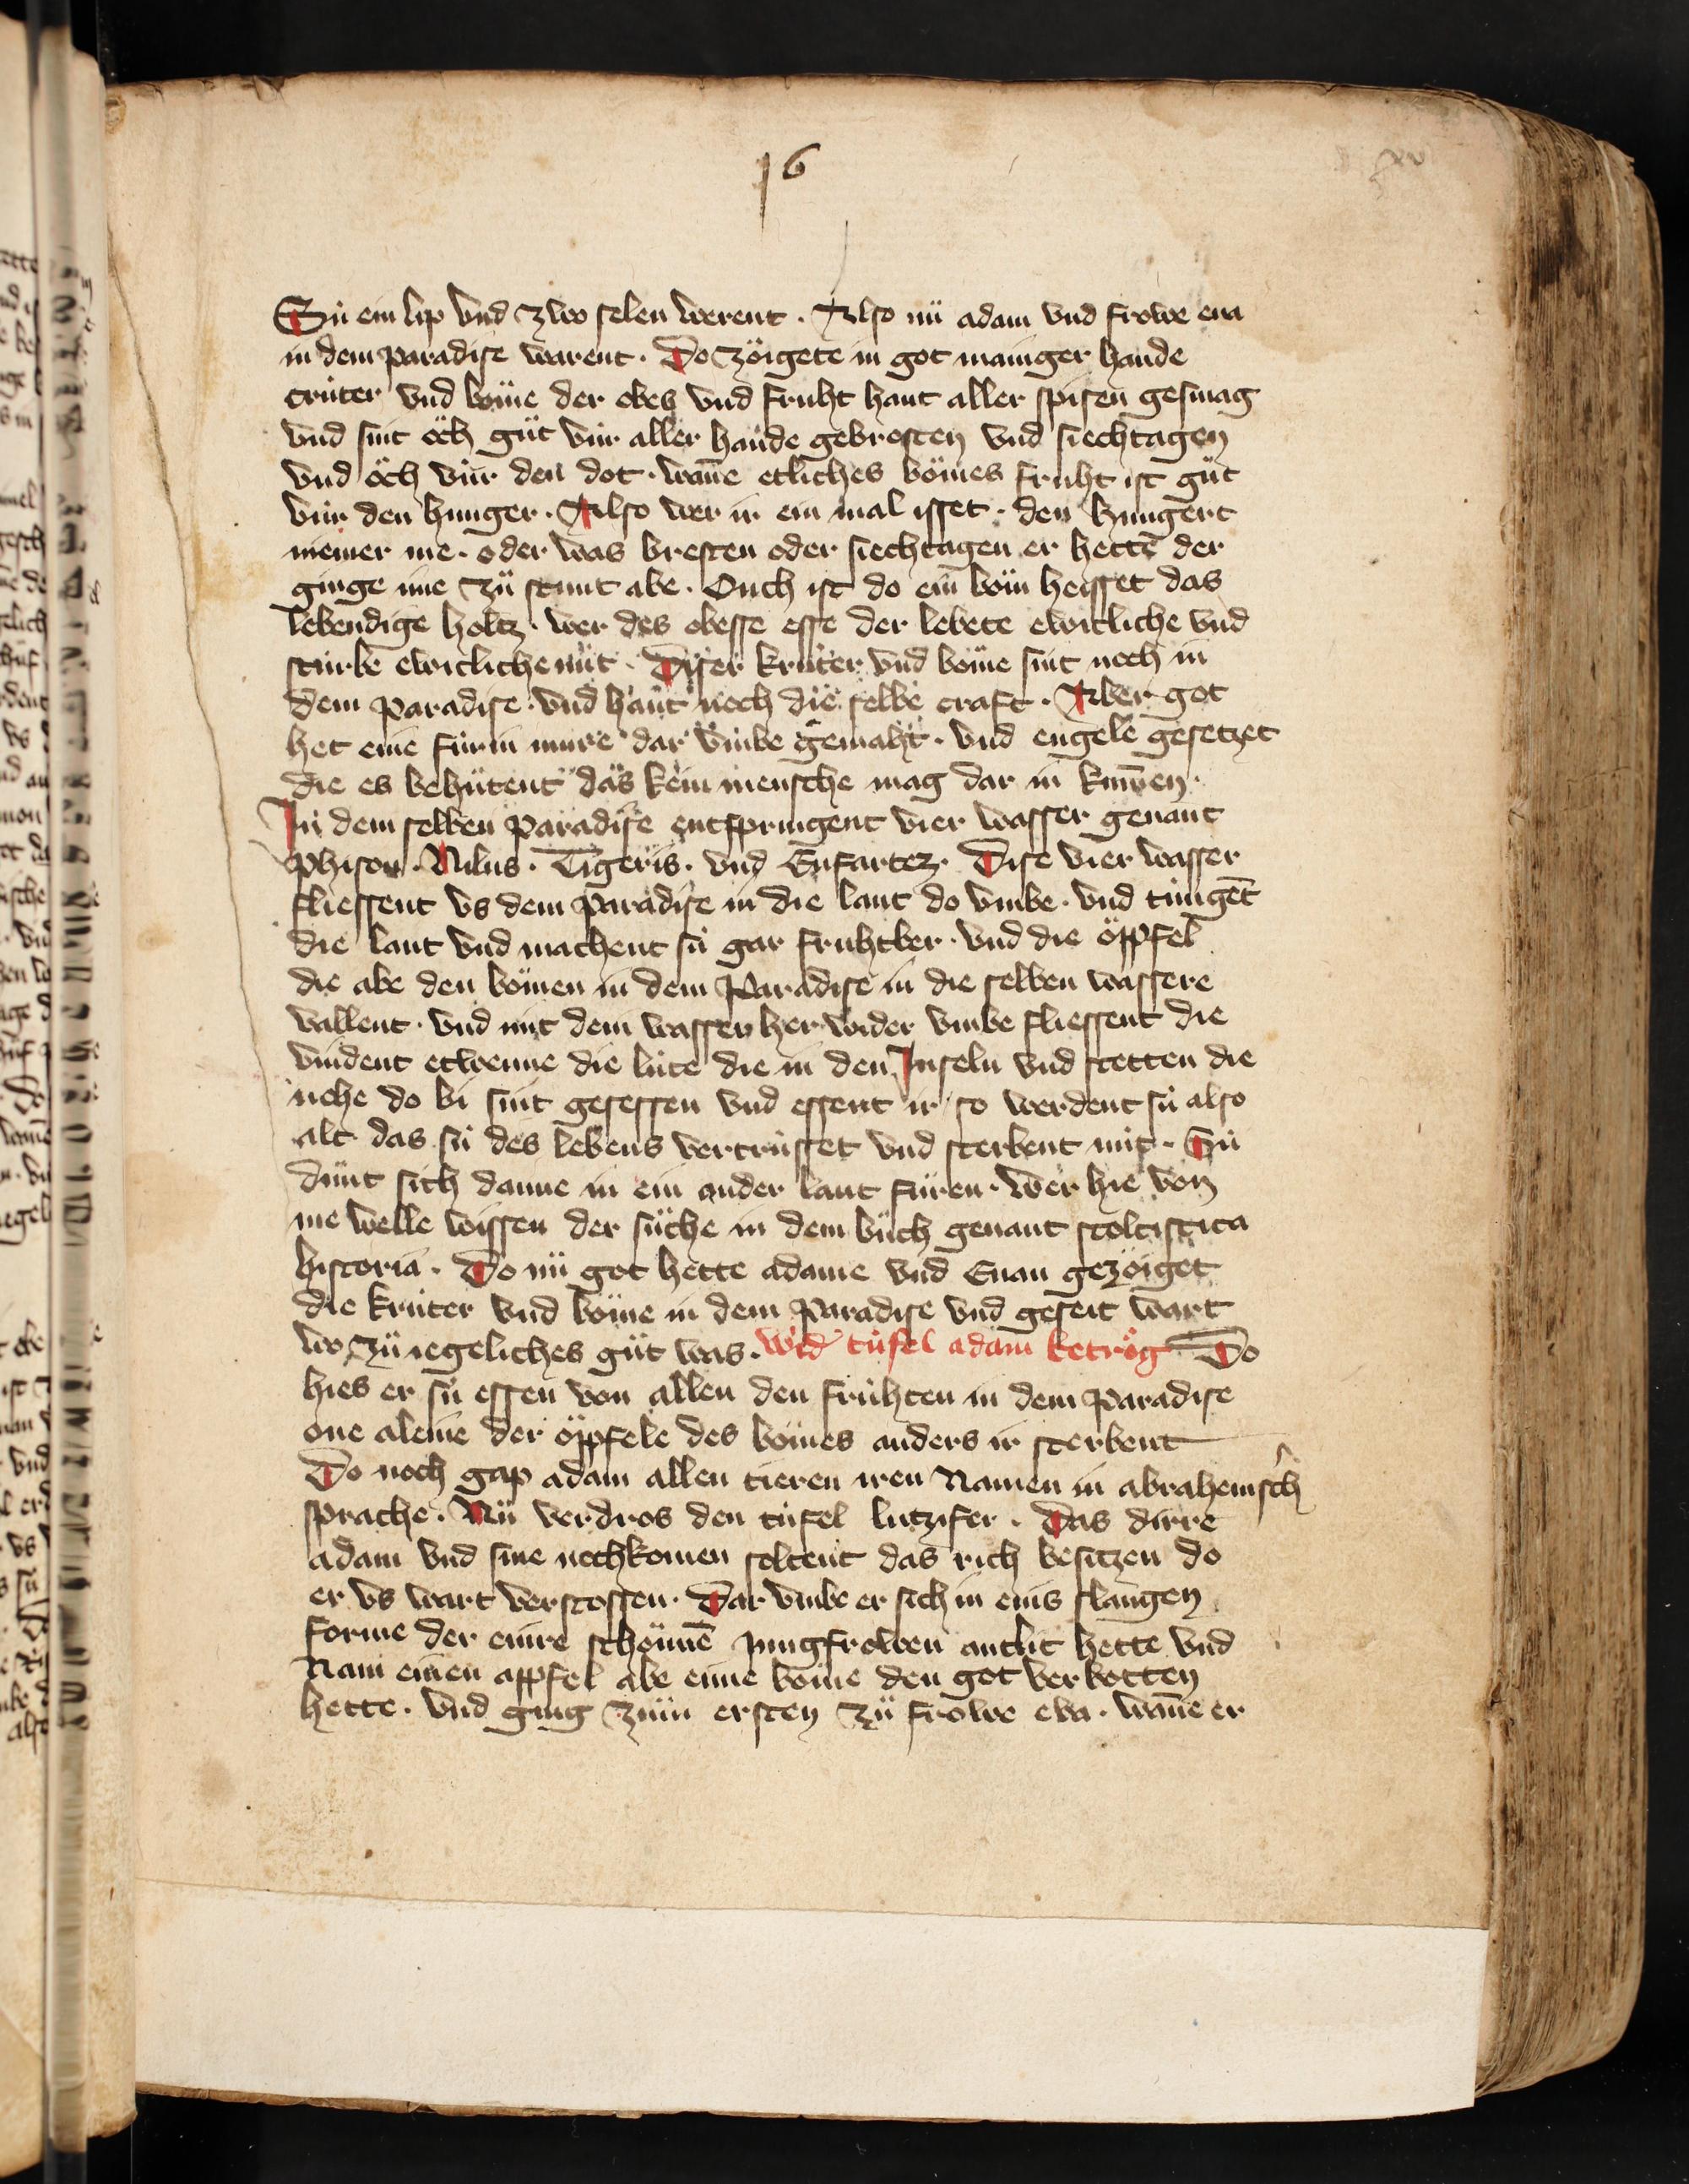 16
xv
Sú ein lip vnd zwo selen werent . Also nü adam vnd frowe eua
in dem paradise warent . Do zöigete in got maniger hande
crúter vnd böme der obes vnd fruht hant aller spisen gesmag
vnd sint öch güt vúr aller hande gebresten vnd siechtagen
vnd öch vúr den dot . wan̄e etliches bömes fruht ist güt
vúr den hunger . Also wer ir ein mal isset . den hungert
niemer me . oder was bresten oder siechtagen er hette der
ginge ime zü stunt abe . Ouch ist do ein böm heisset das
lebendige holtz . wer des obesse esse der lebete ewicliche vnd
stúrbe ewicliche nút . Diser krúter vnd böme sint noch in
dem paradise . vnd hant noch die selbe craft . Aber got
het eine fúrin mure dar vmbe gemaht . vnd engele gesetzet
die es behütent das kein mensche mag dar in kum̄en .
In dem selben paradise entspringent vier wasser genant
phison . Nilus . Tigeris . vnd Eufartez . Dise vier wasser
fliessent vs dem paradise in die lant do vmbe . vnd túngēt
die lant vnd machent sú gar fruhtber . vnd die öpfel
die abe den bömen in dem Paradise in die selben wassere
vallent . vnd mit dem wasser her wider vmbe fliessent die
vindent etwenne die lúte die in den Inseln vnd stetten die
nohe do bi sint gesessen vnd essent ir so werdent sú also
alt das sú des lebens vertrússet vnd sterbent nút . Sú
dünt sich danne in ein ander lant füren . Wer hie von
me welle wissen der süche in dem büch genant scolastica
historia . Do nü got hette adame vnd Euan gezöiget
die krúter vnd böme in dem Paradise vnd geseit wart
wo zü iegeliches güt was . Wid' túfel adam betrög Do
hies er sú essen von allen den frúhten in dem paradise
one aleine der öpfele des bömes anders ir sterbent
Do noch gap adam allen tieren iren Namen in abrahemsch
sprache . Nü verdros den túfel lutzifer . Das dirre
adam vnd sine nochkomen soltent das rich besitzen do
er vs wart verstossen . Dar vmbe er sich in eins slangen
forme der einre schönnē Jungfrowen antlit hette vnd
Nam einen appfel abe eime böme den got verbotten
hette . vnd ging züm ersten zü frowe eva . wan̄e er